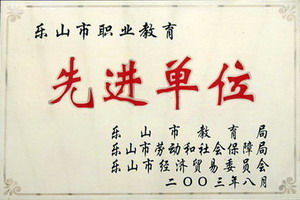 乐山市职业教育
先进单位
乐山市教育局
乐山市劳动和社会保障局
乐山市经济贸易委员会
二〇〇三年八月